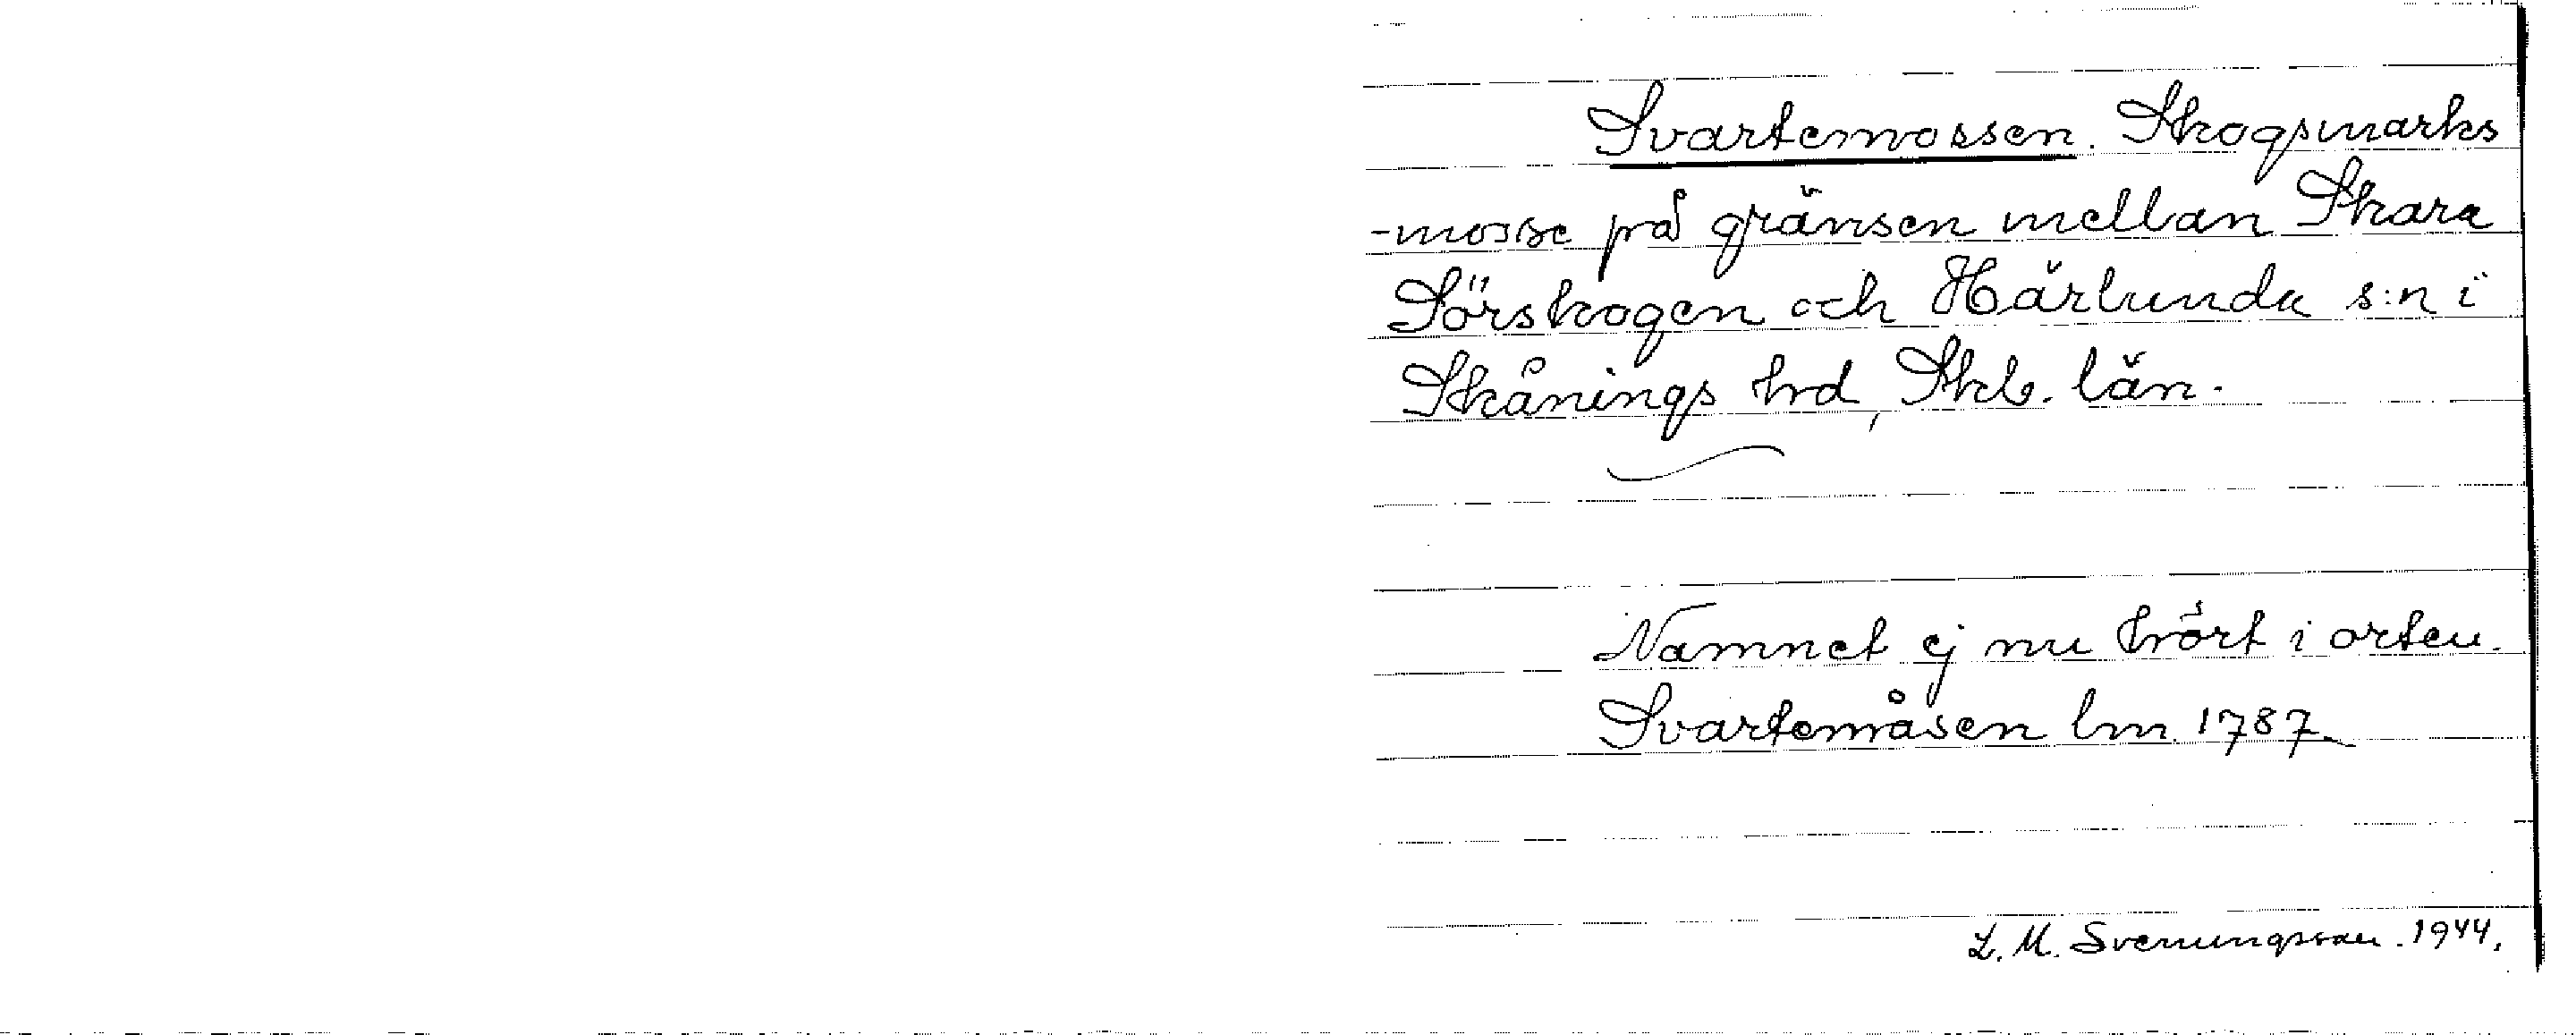 Svartemossen. Skogsmarks
-mosse på gränsen mellan Skara
Sörskogen och Härlunda s:n i
Skånings hrd, Skb. län.
Namnet ej nu hört i orten.
Svartemåsen lm. 1787.
L. M. Svenungsson. 1944.